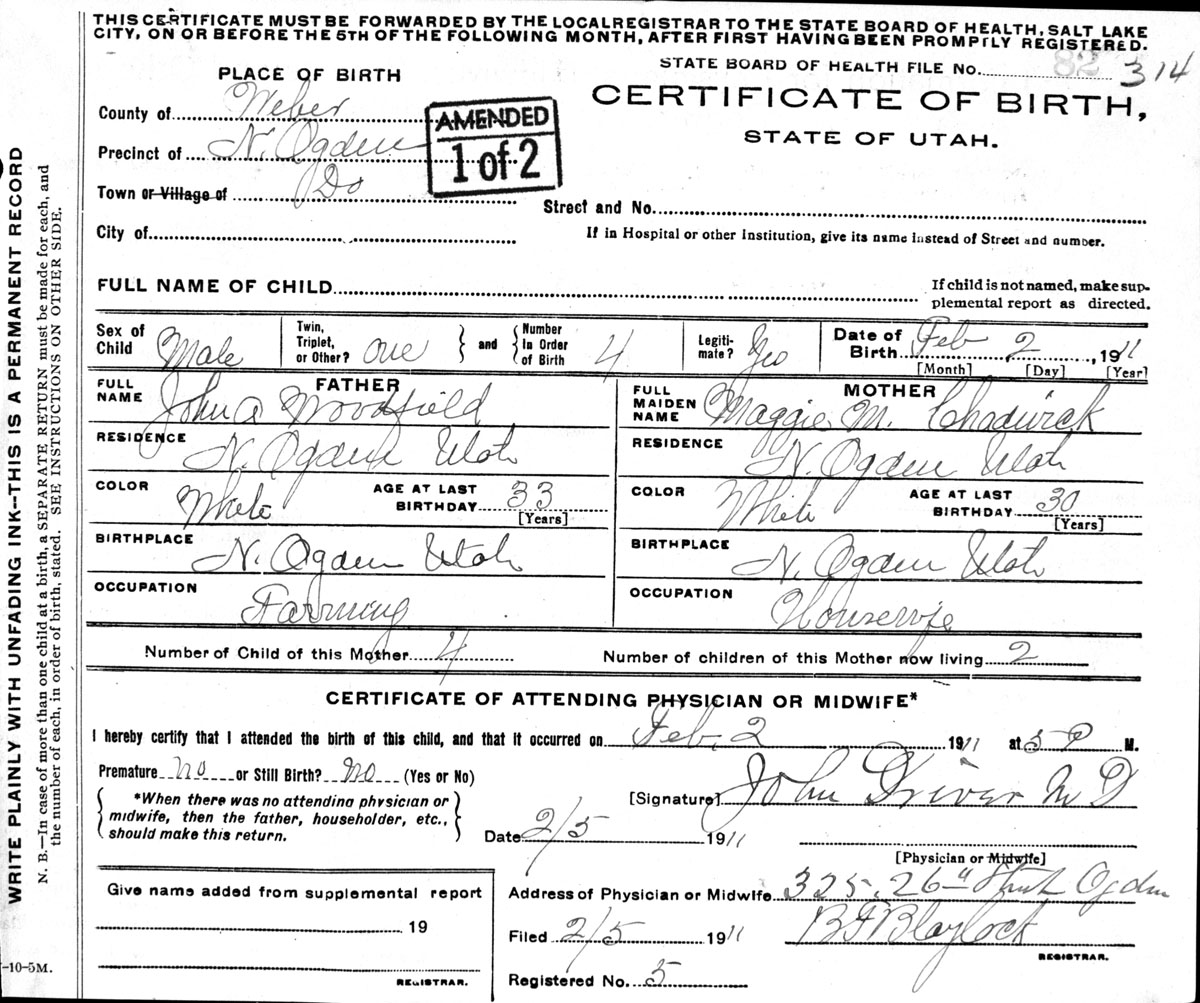 THIS CERTIFICATE MUST BE FORWARDED BY THE LOCAL REGISTRAR TO THE STATE BOARD OF HEALTH, SALT LAKE
CITY, ON OR BEFORE THE 5TH OF THE FOLLOWING MONTH, AFTER FIRST HAVING BEEN PROMPTLY REGISTERED.
STATE BOARD OF HEALTH FILE NO. 82 314
PLACE OF BIRTH
CERTIFICATE OF BIRTH,
STATE OF UTAH.
County of Weber
AMENDED
1 of 2
Precinct of N. Ogden
Town or Village of Do
Street and No.
City of
If in Hospital or other Institution, give its name instead of Street and number.
FULL NAME OF CHILD
If child is not named, make sup-
plemental report as directed.
Sex of Child Male
Twin, Triplet, or Other? one
and
Number In Order of Birth 4
Legiti-mate? Yes
Date of Birth Feb 2, 1911
[Month] [Day] [Year]
FATHER
FULL NAME John A Woodfield
RESIDENCE N. Ogden Utah
COLOR White
AGE AT LAST BIRTHDAY 33
[Years]
BIRTHPLACE N. Ogden Utah
OCCUPATION Farming
MOTHER
FULL MAIDEN NAME Maggie M. Chadwick
RESIDENCE N. Ogden Utah
COLOR White
AGE AT LAST BIRTHDAY 30
[Years]
BIRTHPLACE N. Ogden Utah
OCCUPATION Housewife
Number of Child of this Mother 4
Number of children of this Mother now living 2
CERTIFICATE OF ATTENDING PHYSICIAN OR MIDWIFE*
I hereby certify that I attended the birth of this child, and that it occurred on Feb. 2 1911 at 5 P M.
Premature no or Still Birth? no (Yes or No)
*When there was no attending physician or
midwife, then the father, householder, etc.,
should make this return.
[Signature] John Driver M D
Date 2/5 1911
[Physician or Midwife]
Give name added from supplemental report
19
REGISTRAR.
Address of Physician or Midwife 325. 26th Ogden
Filed 2/5 1911
B F Blaylock
REGISTRAR.
Registered No. 5
WRITE PLAINLY WITH UNFADING INK--THIS IS A PERMANENT RECORD
N. B.—In case of more than one child at a birth, a SEPARATE RETURN must be made for each, and
the number of each, in order of birth, stated. SEE INSTRUCTIONS ON OTHER SIDE.
-10-5M.